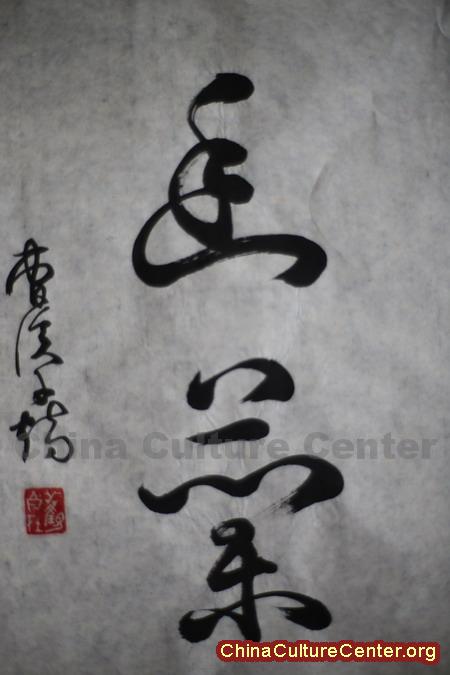 幽蘭
曹溪子
觀自在
China Culture Center
ChinaCultureCenter.org